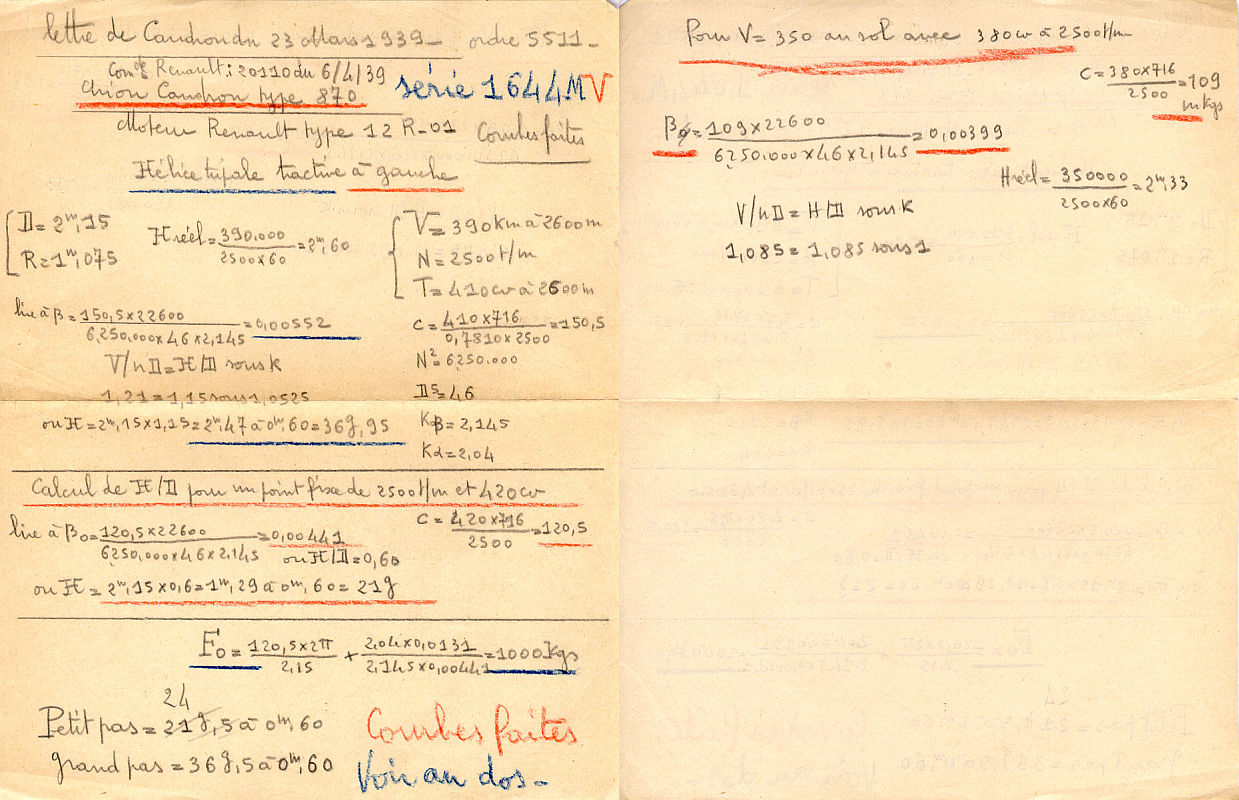 lettre de Caudron du 23 Mars 1939 - ordre 5511 -
Comde Renault : 20110 du 6/4/39
Avion Caudron type 870
série 1644M V
Moteur Renault type 12 R-01
Courbes faites
Hélice tripale tractive à gauche
D = 2m,15
R = 1m,075
H réel = 390.000 / 2500x60 = 2m,60
V = 390 km à 2600 m
N = 2500 t/m
T = 410 cv à 2600 m
lire à β = 150,5 x 22600 / 6.250.000 x 46 x 2,145 = 0,00552
C = 410 x 716 / 0,7810 x 2500 = 150,5
V/nD = H/D sous K
N² = 6250.000
1,21 = 1,15 sous 1,0525
D5 = 46
ou H = 2m,15 x 1,15 = 2m,47 à 0m,60 = 36g,95
Kβ = 2,145
Kα = 2,04
Calcul de H/D pour un point fixe de 2500 t/m et 420 cv
lire à βo = 120,5 x 22600 / 6250.000 x 46 x 2,145 = 0,00441
C = 420 x 716 / 2500 = 120,5
ou H/D = 0,60
ou H = 2m,15 x 0,6 = 1m,29 à 0m,60 = 21g
Fo = 120,5 x 2π / 2,15 x 2,04 x 0,0131 / 2,145 x 0,00441 = 1000 Kgs
24
Petit pas = 21g,5 à 0m,60
grand pas = 36g,5 à 0m,60
Courbes faites
Voir au dos -
Pour V = 350 au sol avec 380 cv à 2500 t/m
C = 380 x 716 / 2500 = 109 mkgs
βo = 109 x 22600 / 6250.000 x 46 x 2,145 = 0,00399
H réel = 350000 / 2500 x 60 = 2m,33
V/nD = H/D sous K
1,085 = 1,085 sous 1